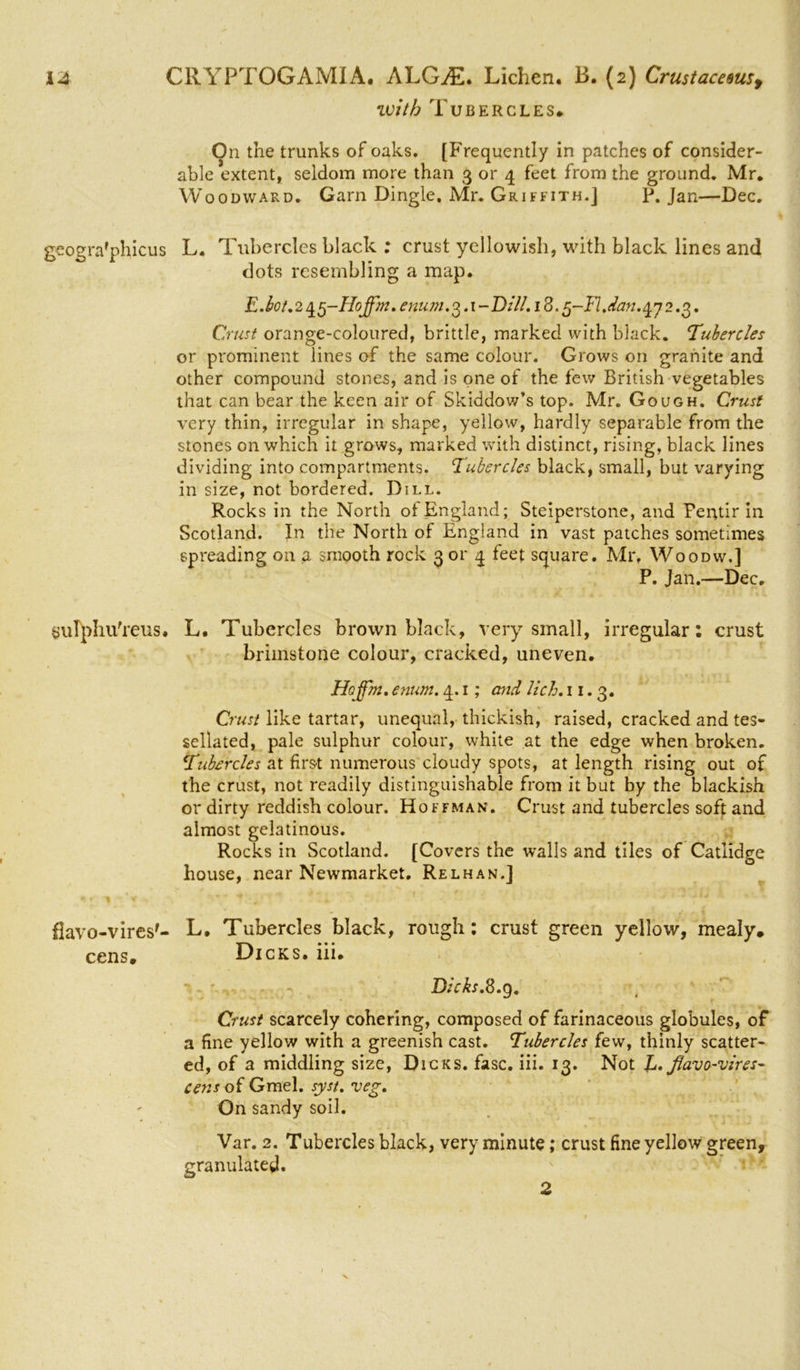 12 CRYPTOGAMIA. ALGÆ. Lichen. B. (2) Crustaceous,
with TUBERCLES.
On the trunks of oaks. [Frequently in patches of consider-
able extent, seldom more than 3 or 4 feet from the ground. Mr.
WOODWARD. Garn Dingle. Mr. GRIFFITH.] P. Jan—Dec.
geogra'phicus L. Tubercles black : crust yellowish, with black lines and
dots resembling a map.
E.bot.245-Hoffm.enum.3.1-Dill.18.5-Fl.dan.472.3.
Crust orange-coloured, brittle, marked with black. Tubercles
or prominent lines of the same colour. Grows on granite and
other compound stones, and is one of the few British vegetables
that can bear the keen air of Skiddow's top. Mr. GOUGH. Crust
very thin, irregular in shape, yellow, hardly separable from the
stones on which it grows, marked with distinct, rising, black lines
dividing into compartments. Tubercles black, small, but varying
in size, not bordered. DILL.
Rocks in the North of England; Steiperstone, and Pentir in
Scotland. In the North of England in vast patches sometimes
spreading on a smooth rock 3 or 4 feet square. Mr. WOODW.]
P. Jan.—Dec.
sulphu'reus. L. Tubercles brown black, very small, irregular: crust
brimstone colour, cracked, uneven.
Hoffm. enum. 4.1 ; and lich. 11. 3.
Crust like tartar, unequal, thickish, raised, cracked and tes-
sellated, pale sulphur colour, white at the edge when broken.
Tubercles at first numerous cloudy spots, at length rising out of
the crust, not readily distinguishable from it but by the blackish
or dirty reddish colour. HOFFMAN. Crust and tubercles soft and
almost gelatinous.
Rocks in Scotland. [Covers the walls and tiles of Catlidge
house, near Newmarket. RELHAN.]
flavo-vires'- L. Tubercles black, rough: crust green yellow, mealy.
cens. DICKS. iii.
Dicks.8.9.
Crust scarcely cohering, composed of farinaceous globules, of
a fine yellow with a greenish cast. Tubercles few, thinly scatter-
ed, of a middling size, DICKS. fasc. iii. 13. Not L. flavo-vires-
cens of Gmel. syst. veg.
On sandy soil.
Var. 2. Tubercles black, very minute ; crust fine yellow green,
granulated.
2